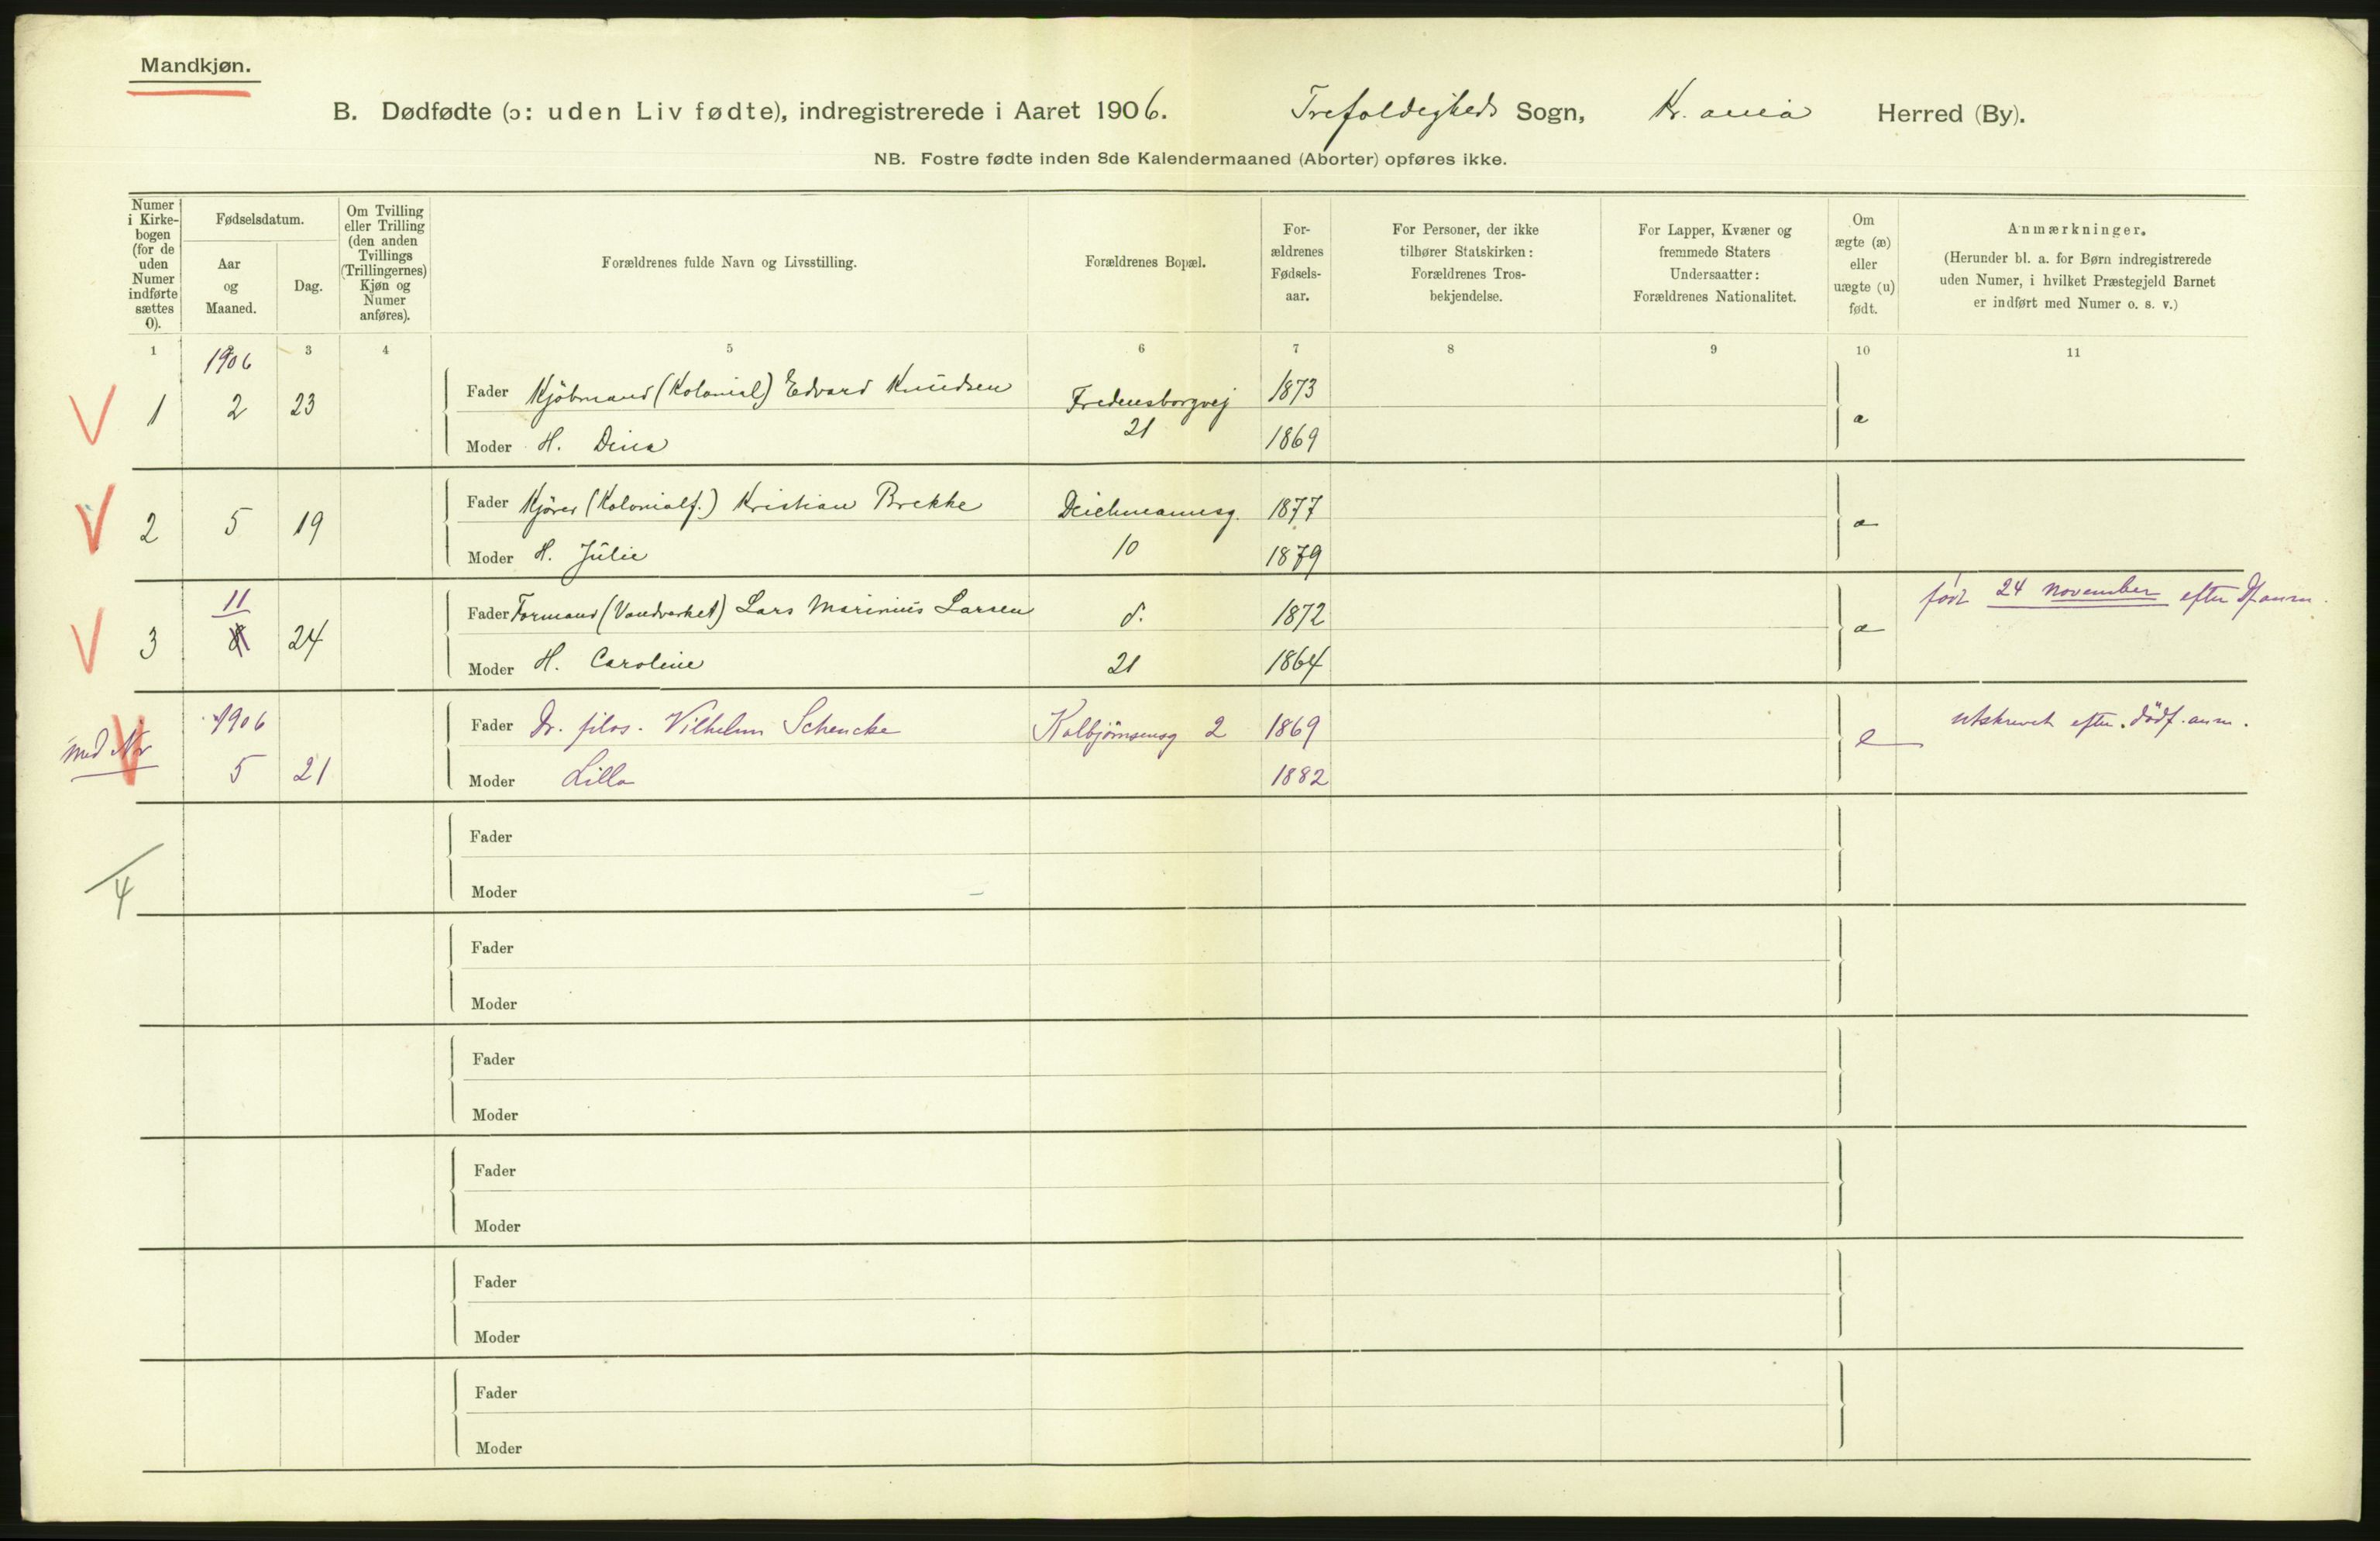 Mandkjøn.
B. Dødfødte (ɔ: uden Liv fødte), indregistrerede i Aaret 1906. Trefoldigheds Sogn, Kr.ania Herred (By).
NB. Fostre fødte inden 8de Kalendermaaned (Aborter) opføres ikke.
Numer
i Kirke-
bogen
(for de
uden
Numer
indførte
sættes
0).
Fødselsdatum.
Aar
og
Maaned.
Dag.
Om Tvilling
eller Trilling
(den anden
Tvillings
(Trillingernes)
Kjøn og
Numer
anføres).
Forældrenes fulde Navn og Livsstilling.
Forældrenes Bopæl.
For-
ældrenes
Fødsels-
aar.
For Personer, der ikke
tilhører Statskirken:
Forældrenes Tros-
bekjendelse.
For Lapper, Kvæner og
fremmede Staters
Undersaatter:
Forældrenes Nationalitet.
Om
ægte (æ)
eller
uægte (u)
født.
Anmærkninger.
(Herunder bl. a. for Børn indregistrerede
uden Numer, i hvilket Præstegjeld Barnet
er indført med Numer o. s. v.)
1 3 4 5 6 7 8 9 10 11
1906
1 2 23 Fader Kjöbmand (Kolonial) Edvard Knudsen Fredensborgvej 1873
21 a
Moder H. Dina 1869
2 5 19 Fader Kjöbm (Kolonialf.) Kristian Brekke Deichmannsg. 1877
a
Moder H. Julie 10 1879
11
3 8 24 Fader Formand (Vandverket) Lars Marinius Larsen d. 1872 a født 24 november efter Df anm.
Moder H. Caroline 21 1864
1906 Fader Dr. filos. Vilhelm Schencke Kolbjörnsensg 2 1869 e utskrevet efter dödf. anm.
med Nr 5 21 Moder Lilla 1882
Fader
4 Moder
Fader
Moder
Fader
Moder
Fader
Moder
Fader
Moder
Fader
Moder